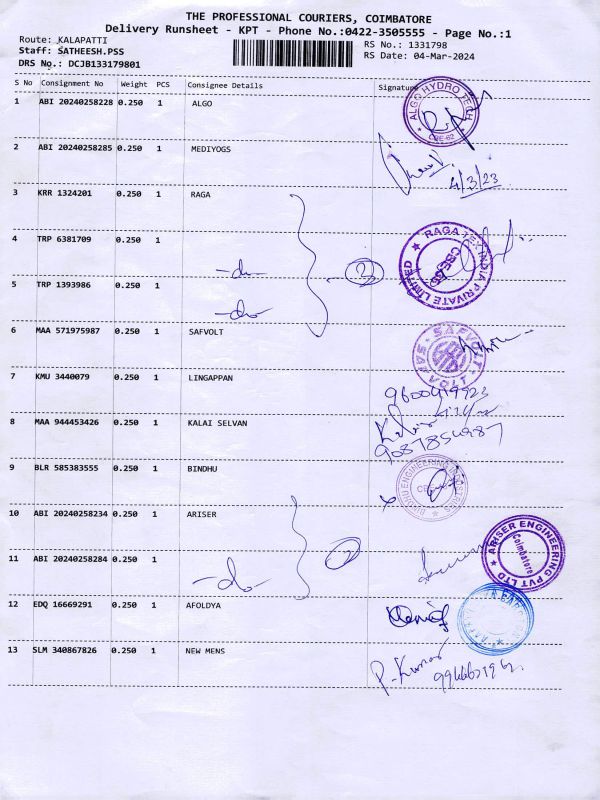 THE PROFESSIONAL COURIERS, COIMBATORE
Delivery Runsheet - KPT - Phone No.:0422-3505555 - Page No.:1
Route: KALAPATTI
RS No.: 1331798
Staff: SATHEESH.PSS
RS Date: 04-Mar-2024
DRS No.: DCJB133179801
S No Consignment No Weight PCS Consignee Details Signature
1 ABI 20240258228 0.250 1 ALGO
ALGO HYDRO TECH
CBE-62
2 ABI 20240258285 0.250 1 MEDIYOGS
4/3/23
3 KRR 1324201 0.250 1 RAGA
RAGA TEX INDIA PRIVATE LIMITED
4 TRP 6381709 0.250 1
-do-
2
5 TRP 1393986 0.250 1
-do-
6 MAA 571975987 0.250 1 SAFVOLT
SAFVOLT
7 KMU 3440079 0.250 1 LINGAPPAN
8 MAA 944453426 0.250 1 KALAI SELVAN
9087854987
9 BLR 585383555 0.250 1 BINDHU
BINDHU ENGINEERING INDUSTRIES
10 ABI 20240258234 0.250 1 ARISER
ARISER ENGINEERING PVT LTD
Coimbatore
2
11 ABI 20240258284 0.250 1
-do-
12 EDQ 16669291 0.250 1 AFOLDYA
13 SLM 340867826 0.250 1 NEW MENS
P. Kumar